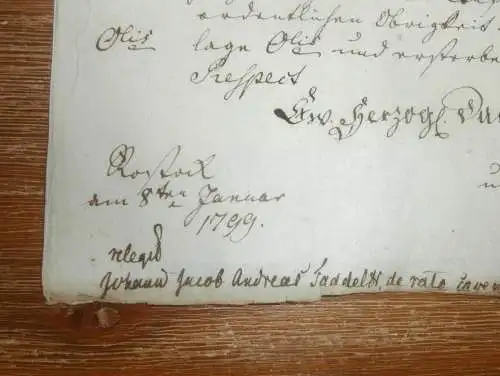 ordentlichen Obrigkeit
Olis lage Olis und ersterbe
Respect
Ew. Herzogl.
Rostock
am 8ten Januar
1799.
relegi
Johann Jacob Andreas Taddel de rato cave